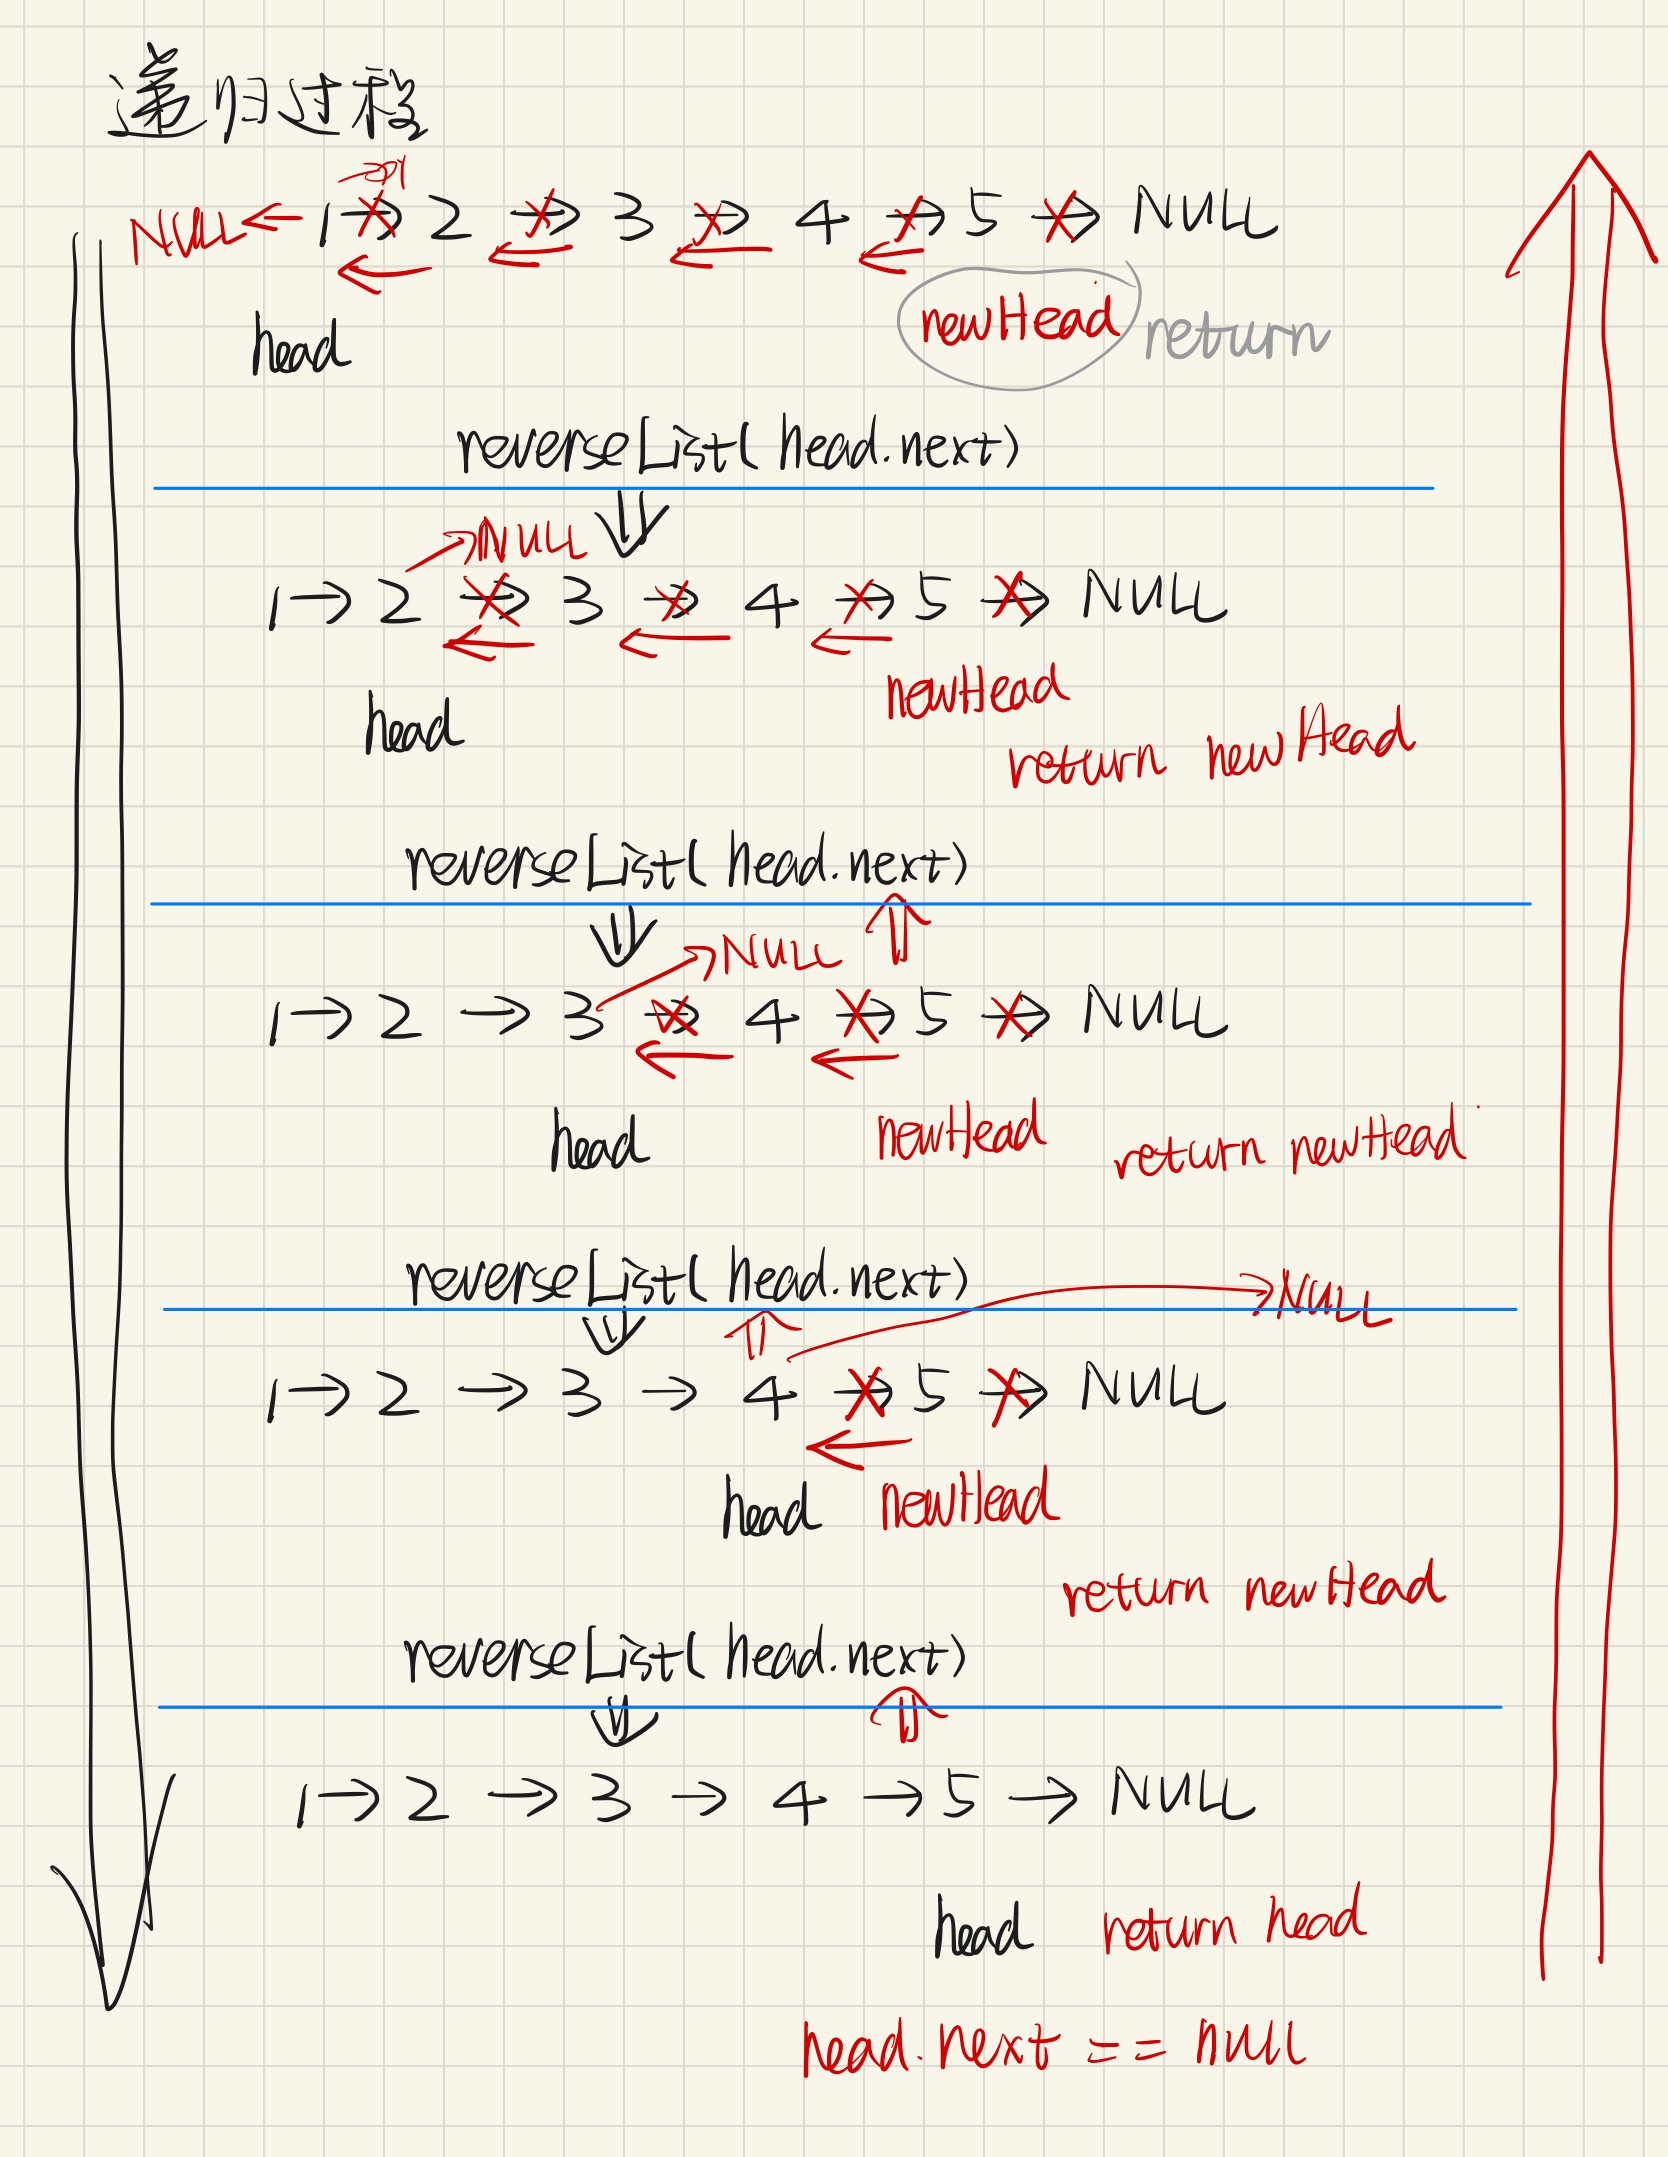 递归过程
NULL ← 1 → 2 → 3 → 4 → 5 → NULL
head newHead return
reverseList( head.next)
NULL
1 → 2 → 3 → 4 → 5 → NULL
head newHead
return newHead
reverseList( head.next)
NULL
1 → 2 → 3 → 4 → 5 → NULL
head newHead return newHead
reverseList( head.next)
NULL
1 → 2 → 3 → 4 → 5 → NULL
head newHead
return newHead
reverseList( head.next)
1 → 2 → 3 → 4 → 5 → NULL
head return head
head.next == null